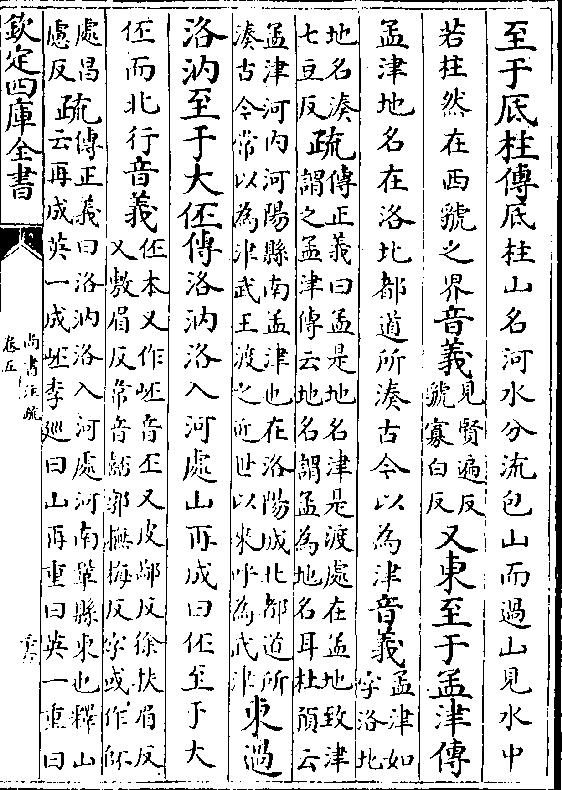 至于厎柱傳厎柱山名河水分流包山而過山見水中
若柱然在西虢之界音義見賢遍反虢寡白反又東至于孟津傳
孟津地名在洛北都道所湊古今以為津音義孟津如字洛北
地名湊七豆反疏傳正義曰孟是地名津是渡處在孟地致津謂之孟津傳云地名謂孟為地名耳杜預云
孟津河内河陽縣南孟津也在洛陽城北都道所湊古今常以為津武王渡之近世以來呼為武津東過
洛汭至于大伾傳洛汭洛入河處山再成曰伾至于大
伾而北行音義伾本又作岯音丕又皮鄙反徐扶眉反又敷眉反韋音嚭郭撫梅反字或作𨸹
處昌慮反疏傳正義曰洛汭洛入河處河南鞏縣東也釋山云再成英一成岯李巡曰山再重曰英一重曰
欽定四庫全書
尚書注疏
卷五